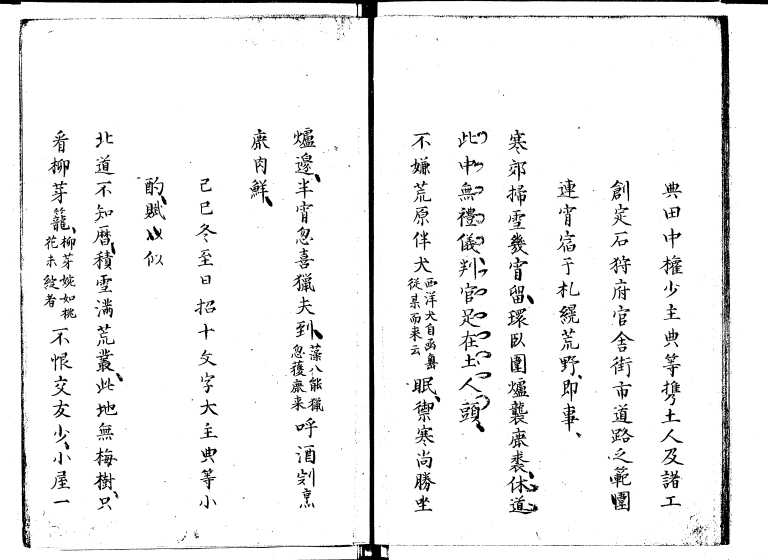 典田中權少主典等携土人及諸工
創定石狩府官舎街市道路之範圍
連宵宿于札縨荒野、即事、
寒郊掃雪幾宵留、環臥圍爐襲鹿裘、休道
此中無禮儀、判官足在土人頭、
不嫌荒原伴犬西洋犬自函舘從某而来云眠、禦寒尚勝坐
爐邊、半宵忽喜獵夫到、藻八能獵忽獲鹿来呼酒割烹
鹿肉鮮、
己巳冬至日招十文字大主典等小
酌、賦以似
北道不知暦、積雪滿荒叢、此地無梅樹、只
看柳芽籠、柳芽婉如桃花未綻者不恨交友少、小屋一